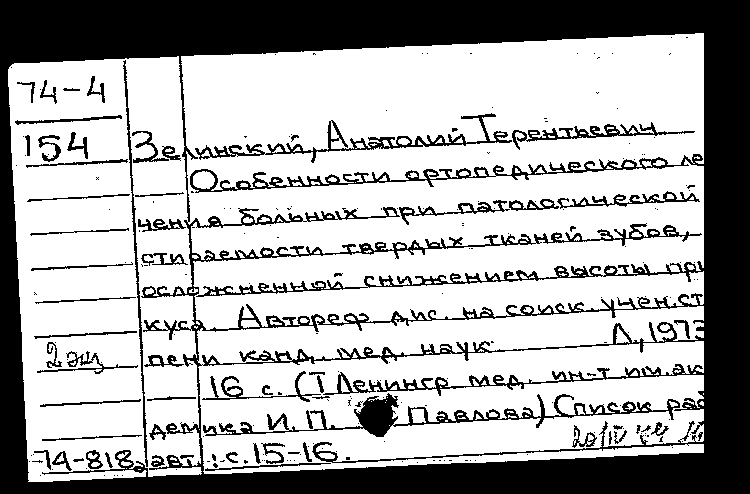 74-4
154 Зелинский, Анатолий Терентьевич
Особенности ортопедического ле
чения больных при патологической
стираемости твердых тканей зубов,
осложненной снижением высоты при
куса. Автореф дис. на соиск. учен. ст
2 экз пени канд. мед. наук Л., 1973
16 с. (I Ленингр мед. ин-т им. ак
демика И. П. Павлова) Список раб
74-818 авт.: с. 15-16.